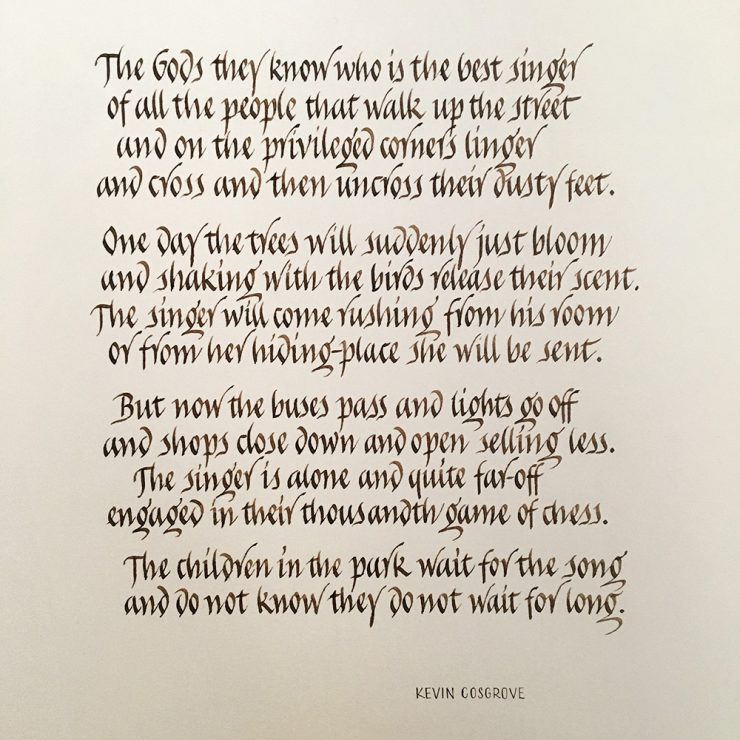 The Gods they know who is the best singer
of all the people that walk up the street
and on the privileged corners linger
and cross and then uncross their dusty feet.
One day the trees will suddenly just bloom
and shaking with the birds release their scent.
The singer will come rushing from his room
or from her hiding-place she will be sent.
But now the buses pass and lights go off
and shops close down and open selling less.
The singer is alone and quite far-off
engaged in their thousandth game of chess.
The children in the park wait for the song
and do not know they do not wait for long.
KEVIN COSGROVE